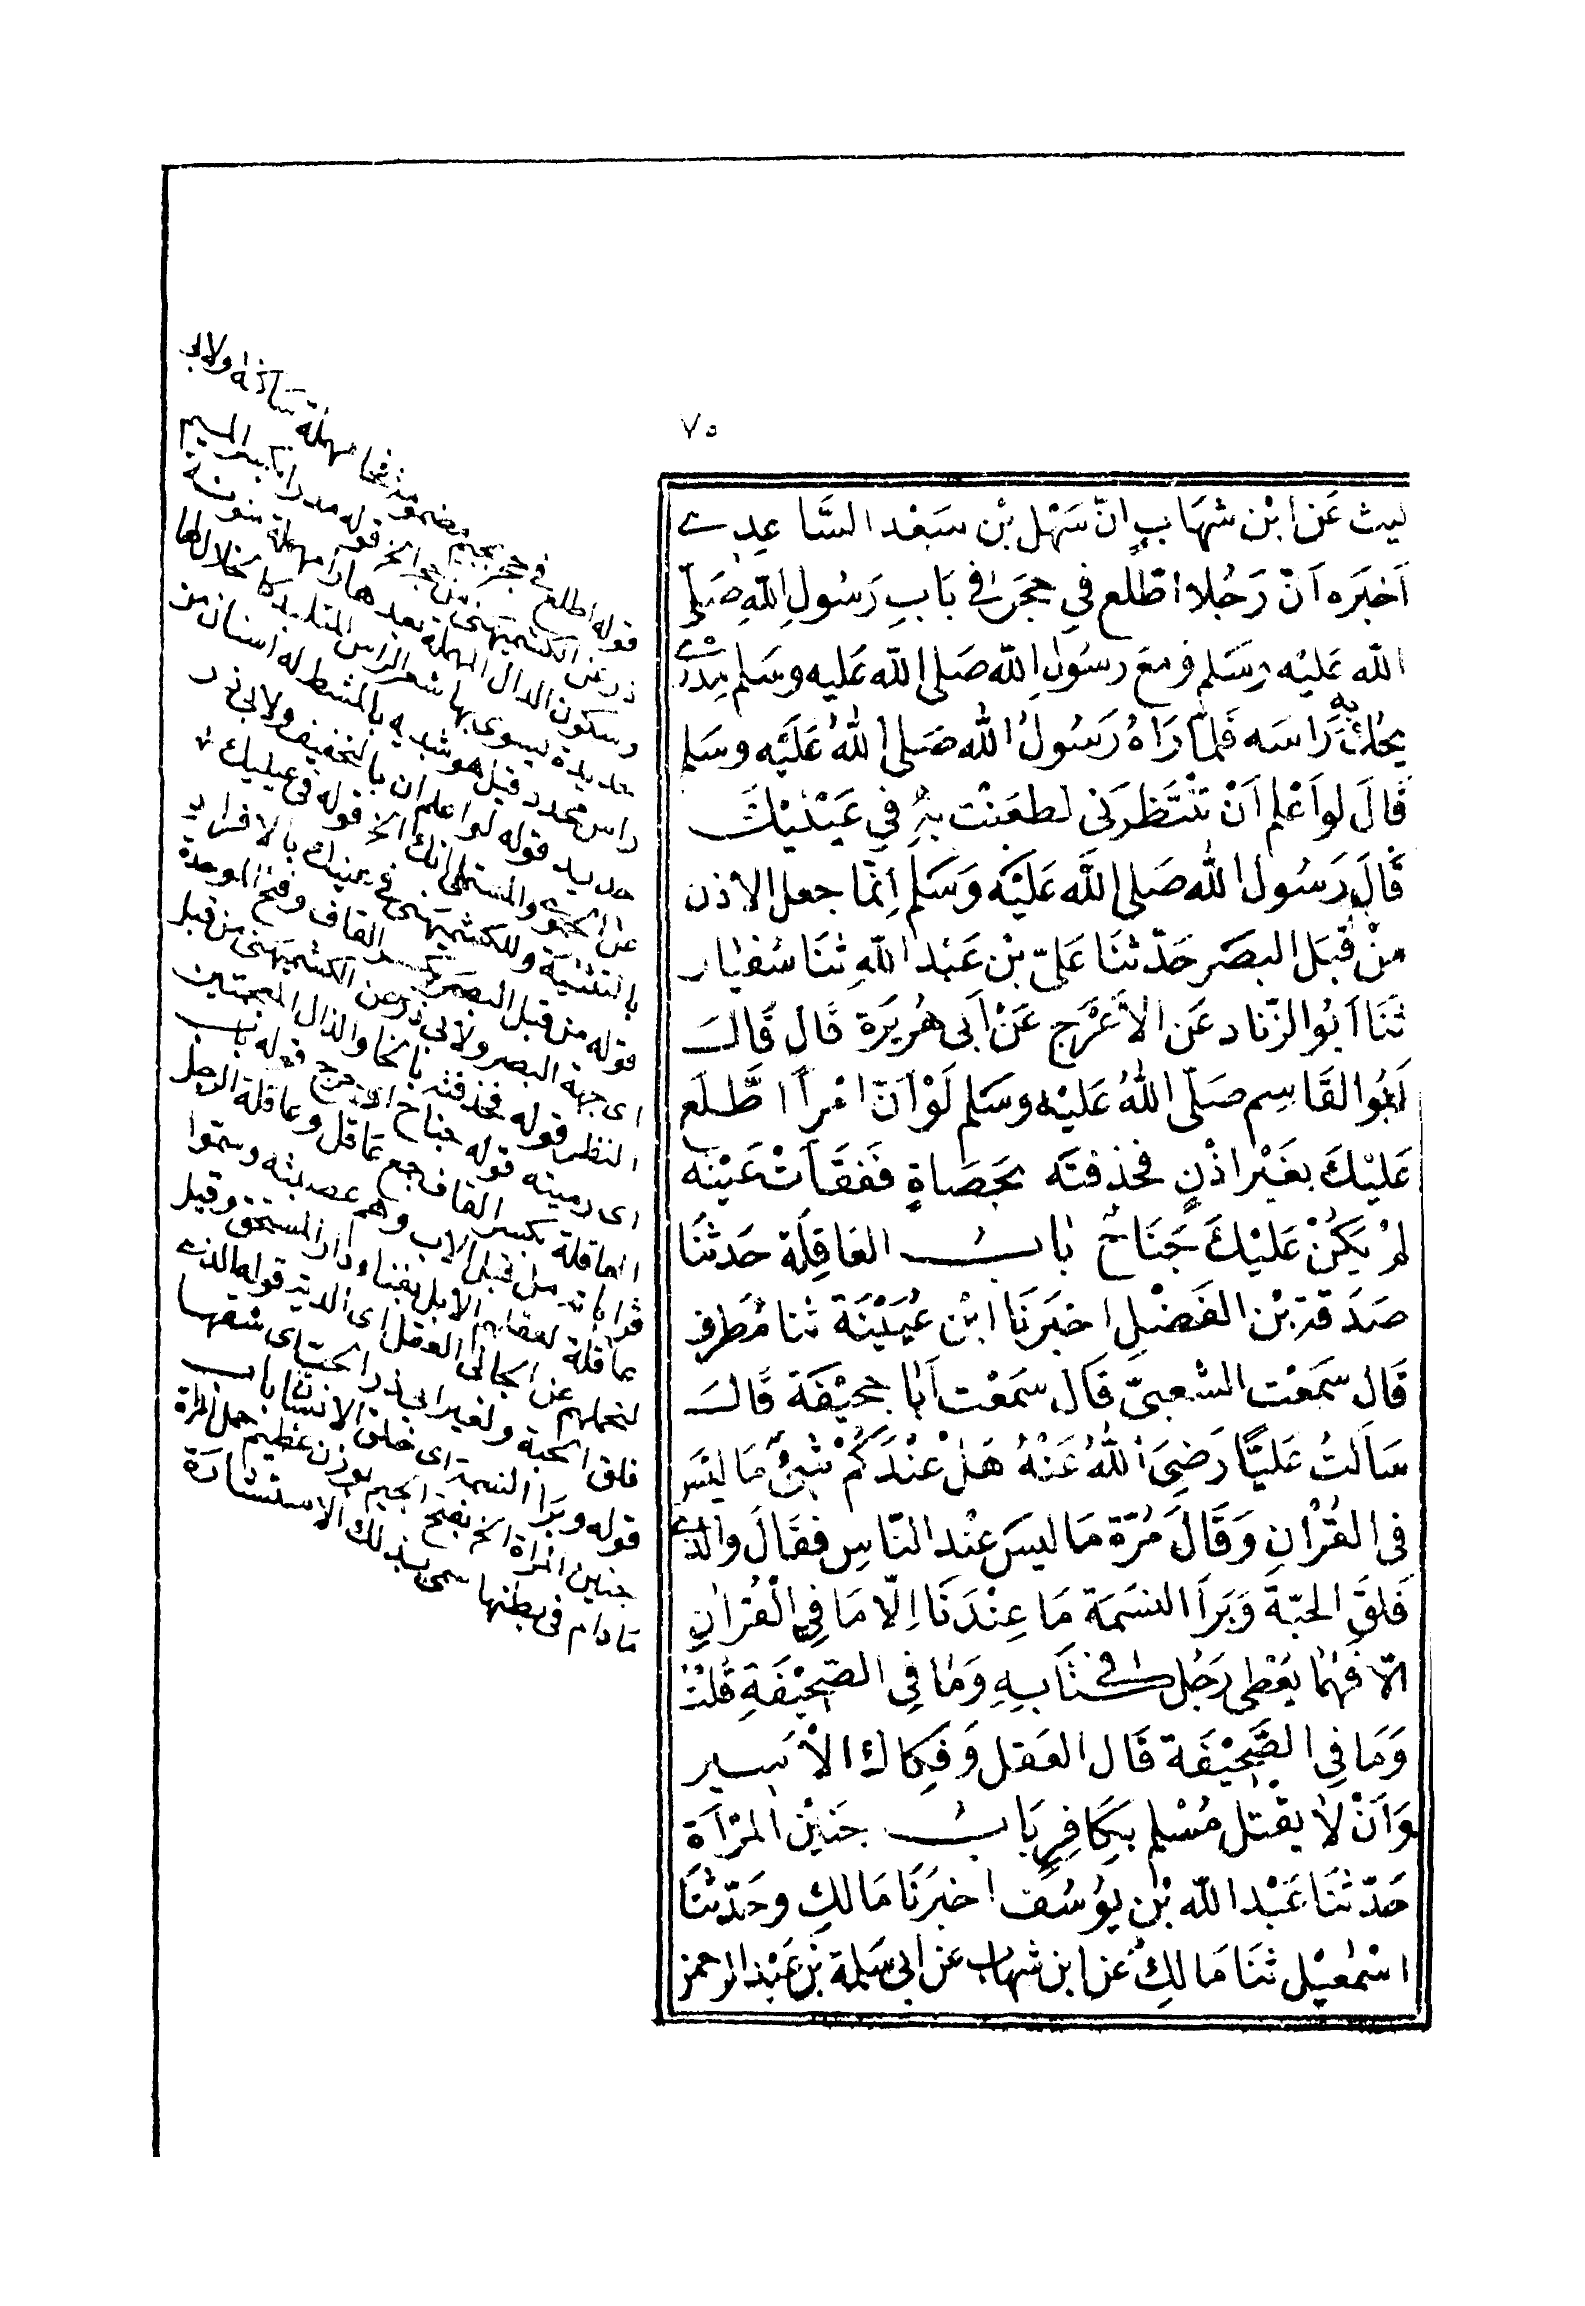 ٧٥
ليث عَن ابْن شهَابٍ انّ سَهْل بْن سَعْد السَّاعِدِے
اَخبَره اَنّ رَجُلا اطّلع فِي حجَر فِي بَابِ رَسُولِ اللّٰهِ صَلّى
اللّٰه عَليْه وسَلم ومعَ رسوُل اللّٰه صَلى اللّٰه عَليه وسَلم مِدْرے
يحُكّ به رَاسَه فَلما رَاهُ رَسُولُ اللّٰه صَلى اللّٰهُ عَلَيْه وسَلم
قَالَ لو اَعْلم اَنْ تنْتَظرَنى لطعَنْت بهِ فِي عَيْنيْك
قَالَ رَسُول اللّٰه صَلى اللّٰه عَليْه وَسَلم اِنمّا جعل الاذن
منْ قبَل البصَر حَدّثنَا عَليّ بْن عَبْد اللّٰهِ ثنَا سُفيٰان
ثنَا اَبُو الزّناد عَن الاَعْرَج عَنْ اَبى هُريَرة قَال قَالَ
اَبُو القَاسِم صَلّى اللّٰهُ عَليْه وسَلم لَوْ اَنّ امْرأً اطَّلَع
عَليْكَ بغَيْر اذْنٍ فخذفتَه بحَصَاةٍ فَفقَأتْ عَيْنه
لمْ يَكُنْ عَليْكَ جَنَاحٌ بَابُ العَاقِلَة حَدثنَا
صَدَقة بْن الفَضْلِ اخبَرنَا ابْن عُيَيْنَة ثنا مُطَرف
قَال سَمعْت الشعبىّ قَال سَمعْت اَبَا جحيْفَة قَالَ
سَاَلتُ عَليًّا رَضِىَ اللّٰهُ عَنْهُ هَلْ عنْدَكُمْ شئٌ مَا ليْسَ
فِى القُرْاٰنِ وَقَالَ مُرّة مَا ليسَ عنْد النّاسِ فقَالَ والذے
فَلقَ الحبّة وَبَرأَ النسَمَة مَا عِنْدَنَا اِلّا مَا فِى الْقُرْاٰنِ
الّا فَهْمًا يعْطى رَجُل فى كتَابِهِ وَمَا فِى الصّحِيْفَةِ قُلتُ
وَمَا فِى الصَّحِيْفَة قَال العَقل وَفَكاكُ الاَسير
وَاَنْ لَا يقْتل مُسْلم بكَافِرٍ بَابُ جَنيْن المرْأَة
حَدّثنَا عَبْد اللّٰه بْن يوُسُف اخبرَنَا مَالك وحَدّثنَا
اسْمٰعيْل ثنَا مَالكٌ عن ابن شهاب عن اَبى سَلمة بْن عَبْد الرحمن
قوله اطلع فى حجر بجيم مضمومة فحا مهملة ساكنة ولابى
ذر عن الكشميهنى من حجر الخ قوله مدرا بكسر الميم
وسكون الدال المهملة بعدها را مهملة منونة
حديدة يسوى بها شعر الراس المتلبد كالخلال لها
راس محدد قيل هو شبيه بالمشط له اسنان من
حديد قوله لو اعلم ان بالتخفيف ولابى ذر
عن الحموے والمستملى انك الخ قوله فى عينيك
بالتثنية وللكشميهنى فى عينك بالافراد
قوله من قبل البصر بكسر القاف وفتح الموحدة
اى جهة البصر ولابى ذر عن الكشميهنى من قبل
النظر قوله فخذفته بالخا والذال المعجمتين
اى رميته قوله جناح اى حرج قوله باب
العاقلة بكسر القاف جمع عاقل وعاقلة الرجل
قراباته من قبل الاب وهم عصبته وسموا
عاقلة لعقلهم الابل بفناء دار المستحق وقيل
لتحملهم عن الجانى العقل اى الدية قوله والذے
فلق الحبة ولغير ابى ذر الحب اى شقها
قوله وبرا النسمة اى خلق الانسان باب
جنين المراة الخ بفتح الجيم بوزن عظيم حمل المراة
مادام فى بطنها سمى بذلك لاستتاره